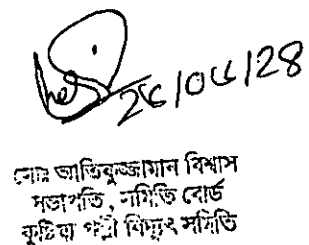 ২৫/০৫/২৪
মোঃ আতিকুজ্জামান বিশ্বাস
সভাপতি, সমিতি বোর্ড
কুষ্টিয়া পল্লী বিদ্যুৎ সমিতি